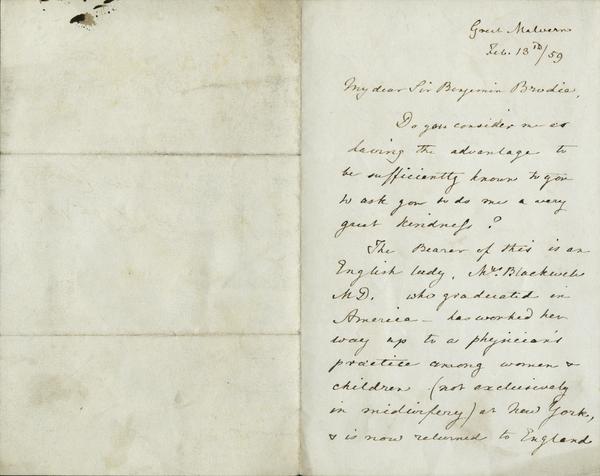 Great Malvern
Feb. 13th/59
My dear Sir Benjamin Brodie,
Do you consider me as
having the advantage to
be sufficiently known to you
to ask you to do me a very
great kindness?
The Bearer of this is an
English lady, Mrs. Blackwell
M.D. who graduated in
America – has worked her
way up to a physician's
practice among women &
children (not exclusively
in midwifery) at New York,
& is now returned to England